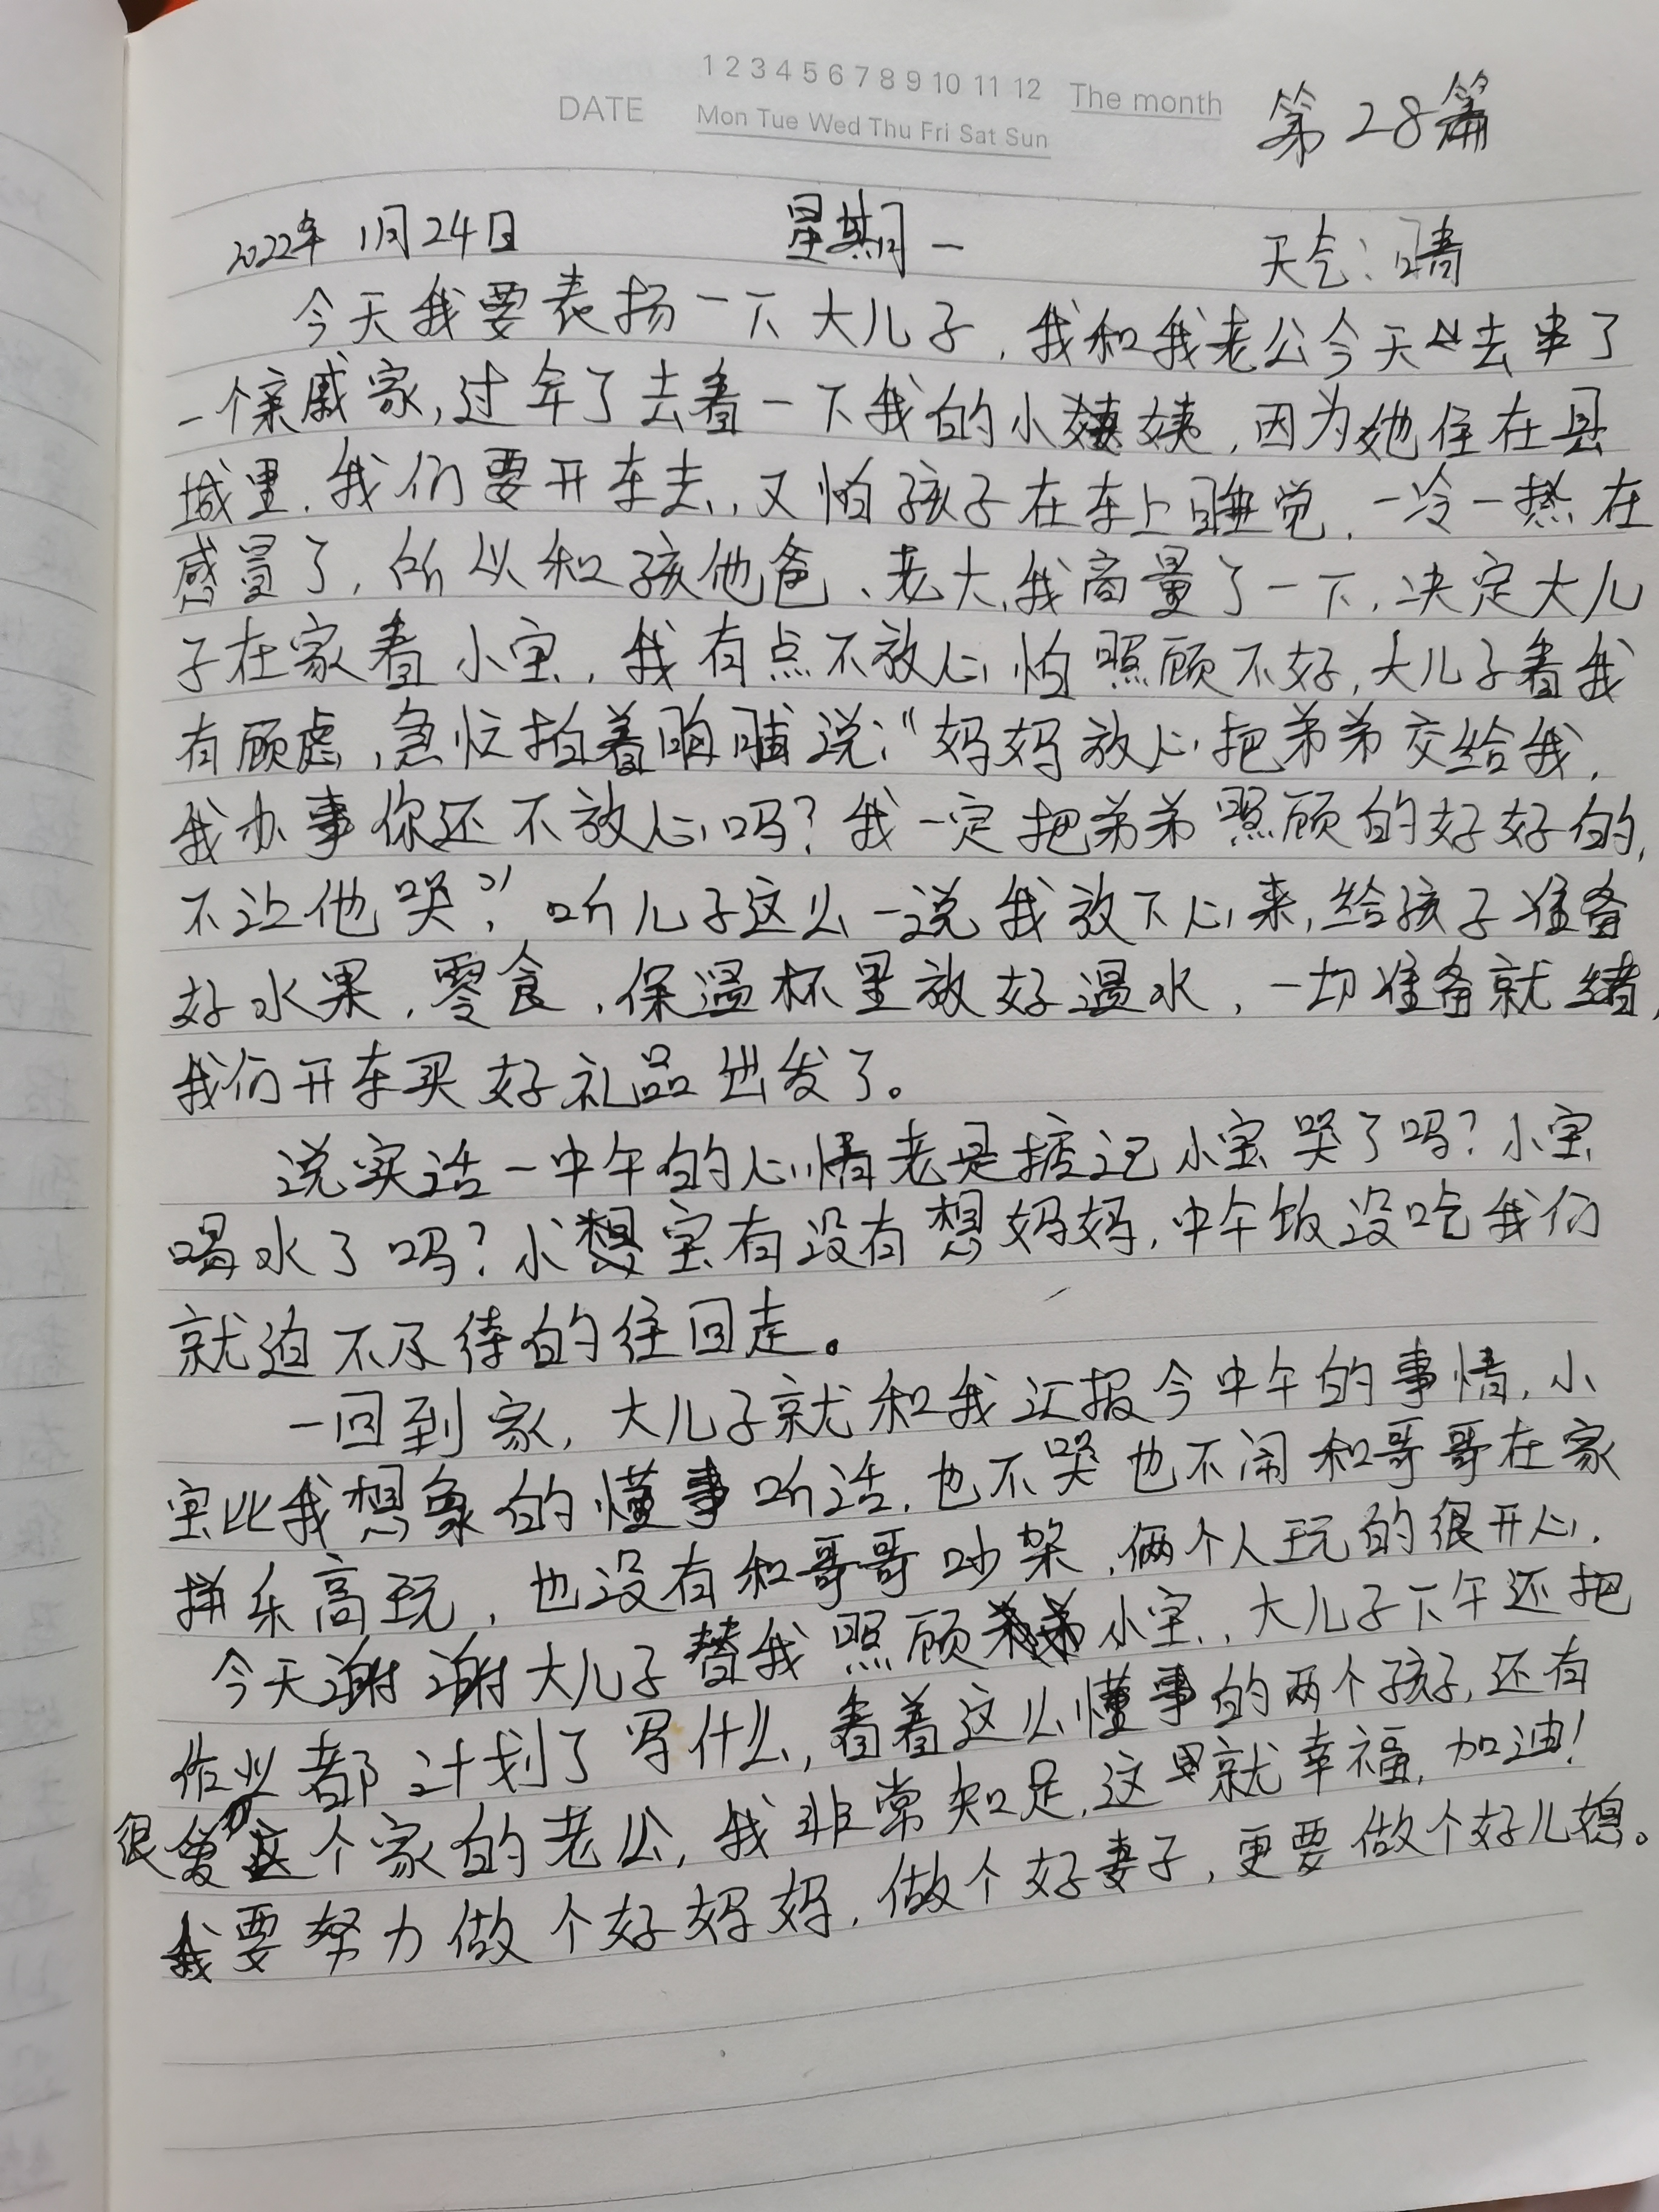 1 2 3 4 5 6 7 8 9 10 11 12 The month
DATE Mon Tue Wed Thu Fri Sat Sun
第28篇
2022年 1月24日 星期一 天气:晴
今天我要表扬一下大儿子,我和我老公今天去串了
一个亲戚家,过年了去看一下我的小姨,因为她住在县
城里.我们要开车去,又怕孩子在车上睡觉,一冷一热在
感冒了,所以和孩他爸、老大、我商量了一下,决定大儿
子在家看小宝,我有点不放心怕照顾不好,大儿子看我
有顾虑,急忙拍着胸脯说:“妈妈放心把弟弟交给我,
我办事你还不放心吗?我一定把弟弟照顾的好好的,
不让他哭?”听儿子这么一说我放下心来,给孩子准备
好水果,零食,保温杯里放好温水,一切准备就绪,
我们开车买好礼品出发了。
说实话一中午的心情老是掂记小宝哭了吗?小宝
喝水了吗?小宝有没有想妈妈,中午饭没吃我们
就迫不及待的往回走。
一回到家,大儿子就和我汇报今中午的事情,小
宝比我想象的懂事听话,也不哭也不闹和哥哥在家
拼乐高玩,也没有和哥哥吵架,俩个人玩的很开心.
今天谢谢大儿子替我照顾小宝,大儿子下午还把
作业都计划了写什么,看着这么懂事的两个孩子,还有
很爱这个家的老公,我非常知足,这里就幸福,加油!
我要努力做个好妈妈,做个好妻子,更要做个好儿媳。